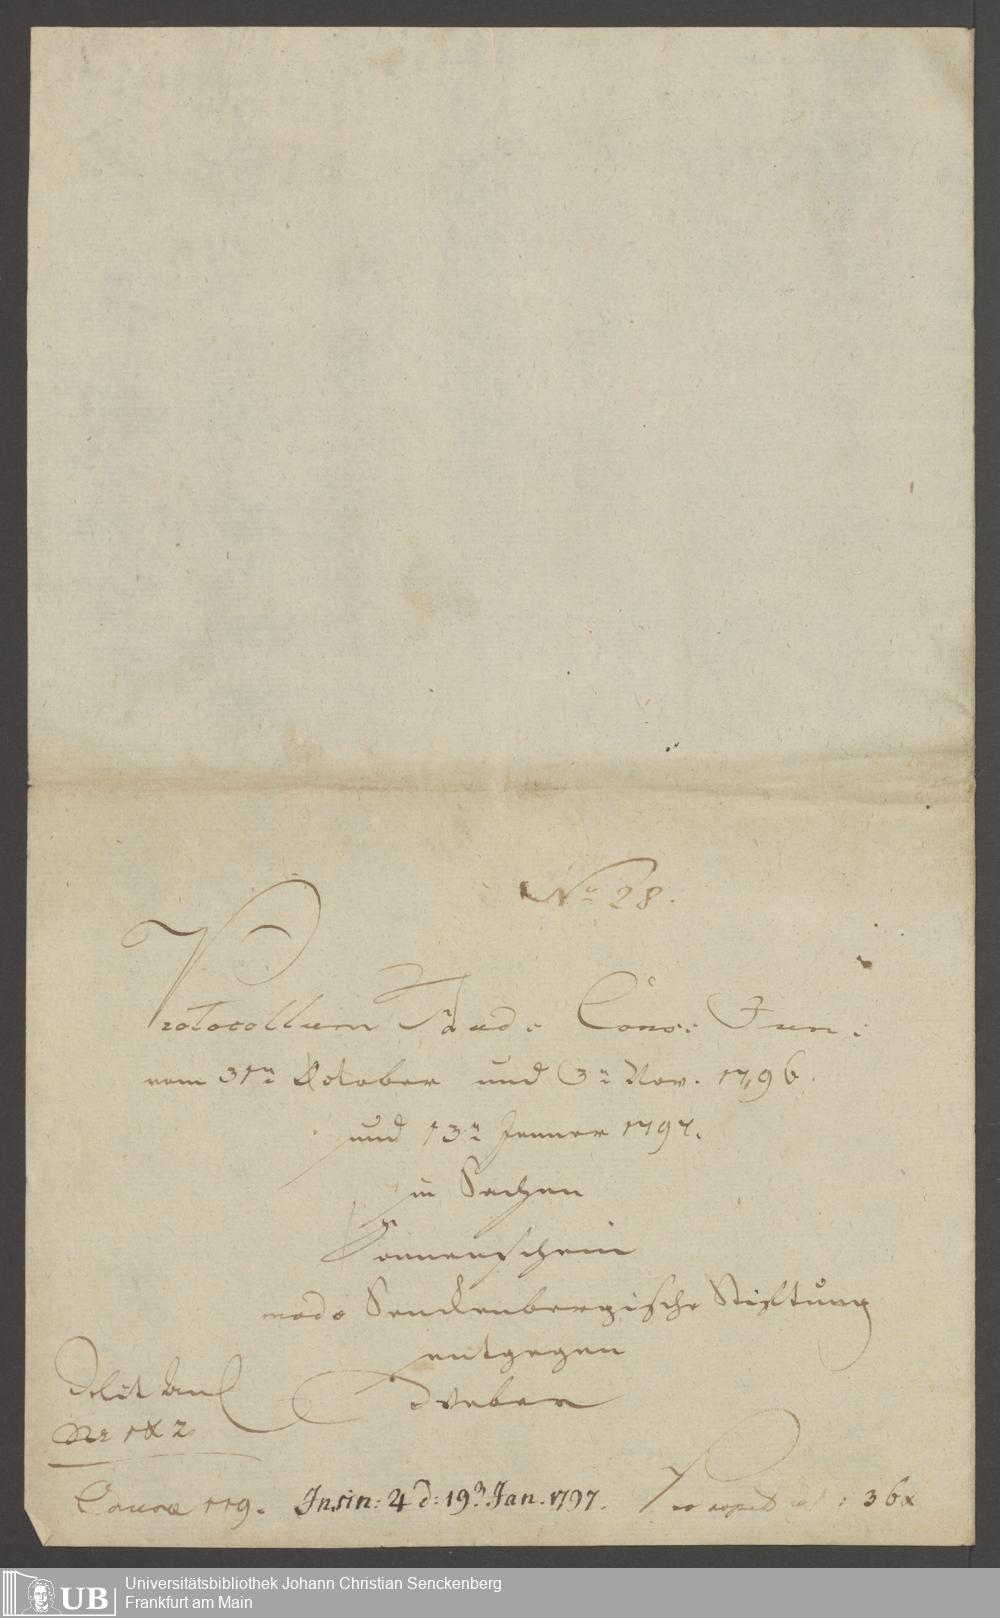 No 28.
Protocollum Jud: Cons: Jun:
vom 31ten October und 3ten Nov. 1796.
und 13ten Jenner 1797.
in Sachen
Sonnenschein
modo Senckenbergische Stiftung
entgegen
Weber
Nr 1 & 2
Causæ 119. Insin: 4 d: 19n Jan. 1797. Pro copia 36x
UB Universitätsbibliothek Johann Christian Senckenberg
Frankfurt am Main